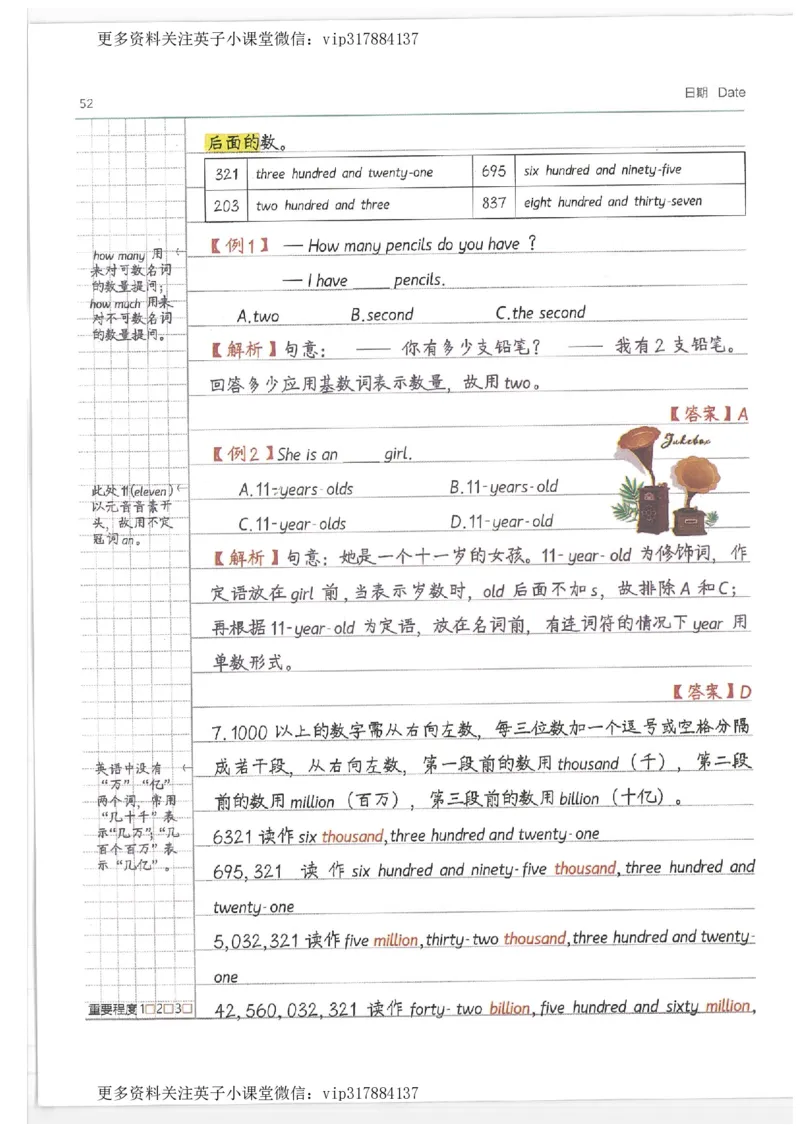 更多资料关注英子小课堂微信：vip317884137
52
日期 Date
后面的数。
321 three hundred and twenty-one 695 six hundred and ninety-five
203 two hundred and three 837 eight hundred and thirty-seven
【例1】 — How many pencils do you have ?
— I have ____ pencils.
A.two B.second C.the second
【解析】句意： —— 你有多少支铅笔？ —— 我有2 支铅笔。
回答多少应用基数词表示数量，故用 two。
【答案】A
【例2】She is an ____ girl.
Jukebox
A.11-years-olds B.11-years-old
C.11-year-olds D.11-year-old
【解析】句意：她是一个十一岁的女孩。11-year-old 为修饰词，作
定语放在 girl 前，当表示岁数时，old 后面不加 s，故排除 A 和 C；
再根据 11-year-old 为定语，放在名词前，有连词符的情况下 year 用
单数形式。
【答案】D
7.1000 以上的数字需从右向左数，每三位数加一个逗号或空格分隔
成若干段，从右向左数，第一段前的数用 thousand（千），第二段
前的数用 million（百万），第三段前的数用 billion（十亿）。
6321 读作 six thousand,three hundred and twenty-one
695,321 读 作 six hundred and ninety-five thousand,three hundred and
twenty-one
5,032,321 读作 five million,thirty-two thousand,three hundred and twenty-
one
42,560,032,321 读作 forty-two billion,five hundred and sixty million,
how many 用
来对可数名词
的数量提问；
how much 用来
对不可数名词
的数量提问。
此处 11(eleven)
以元音音素开
头，故用不定
冠词 an。
英语中没有
“万”“亿”
两个词，常用
“几十千”表
示“几万”；“几
百个百万”表
示“几亿”。
重要程度 1□2□3□
更多资料关注英子小课堂微信：vip317884137